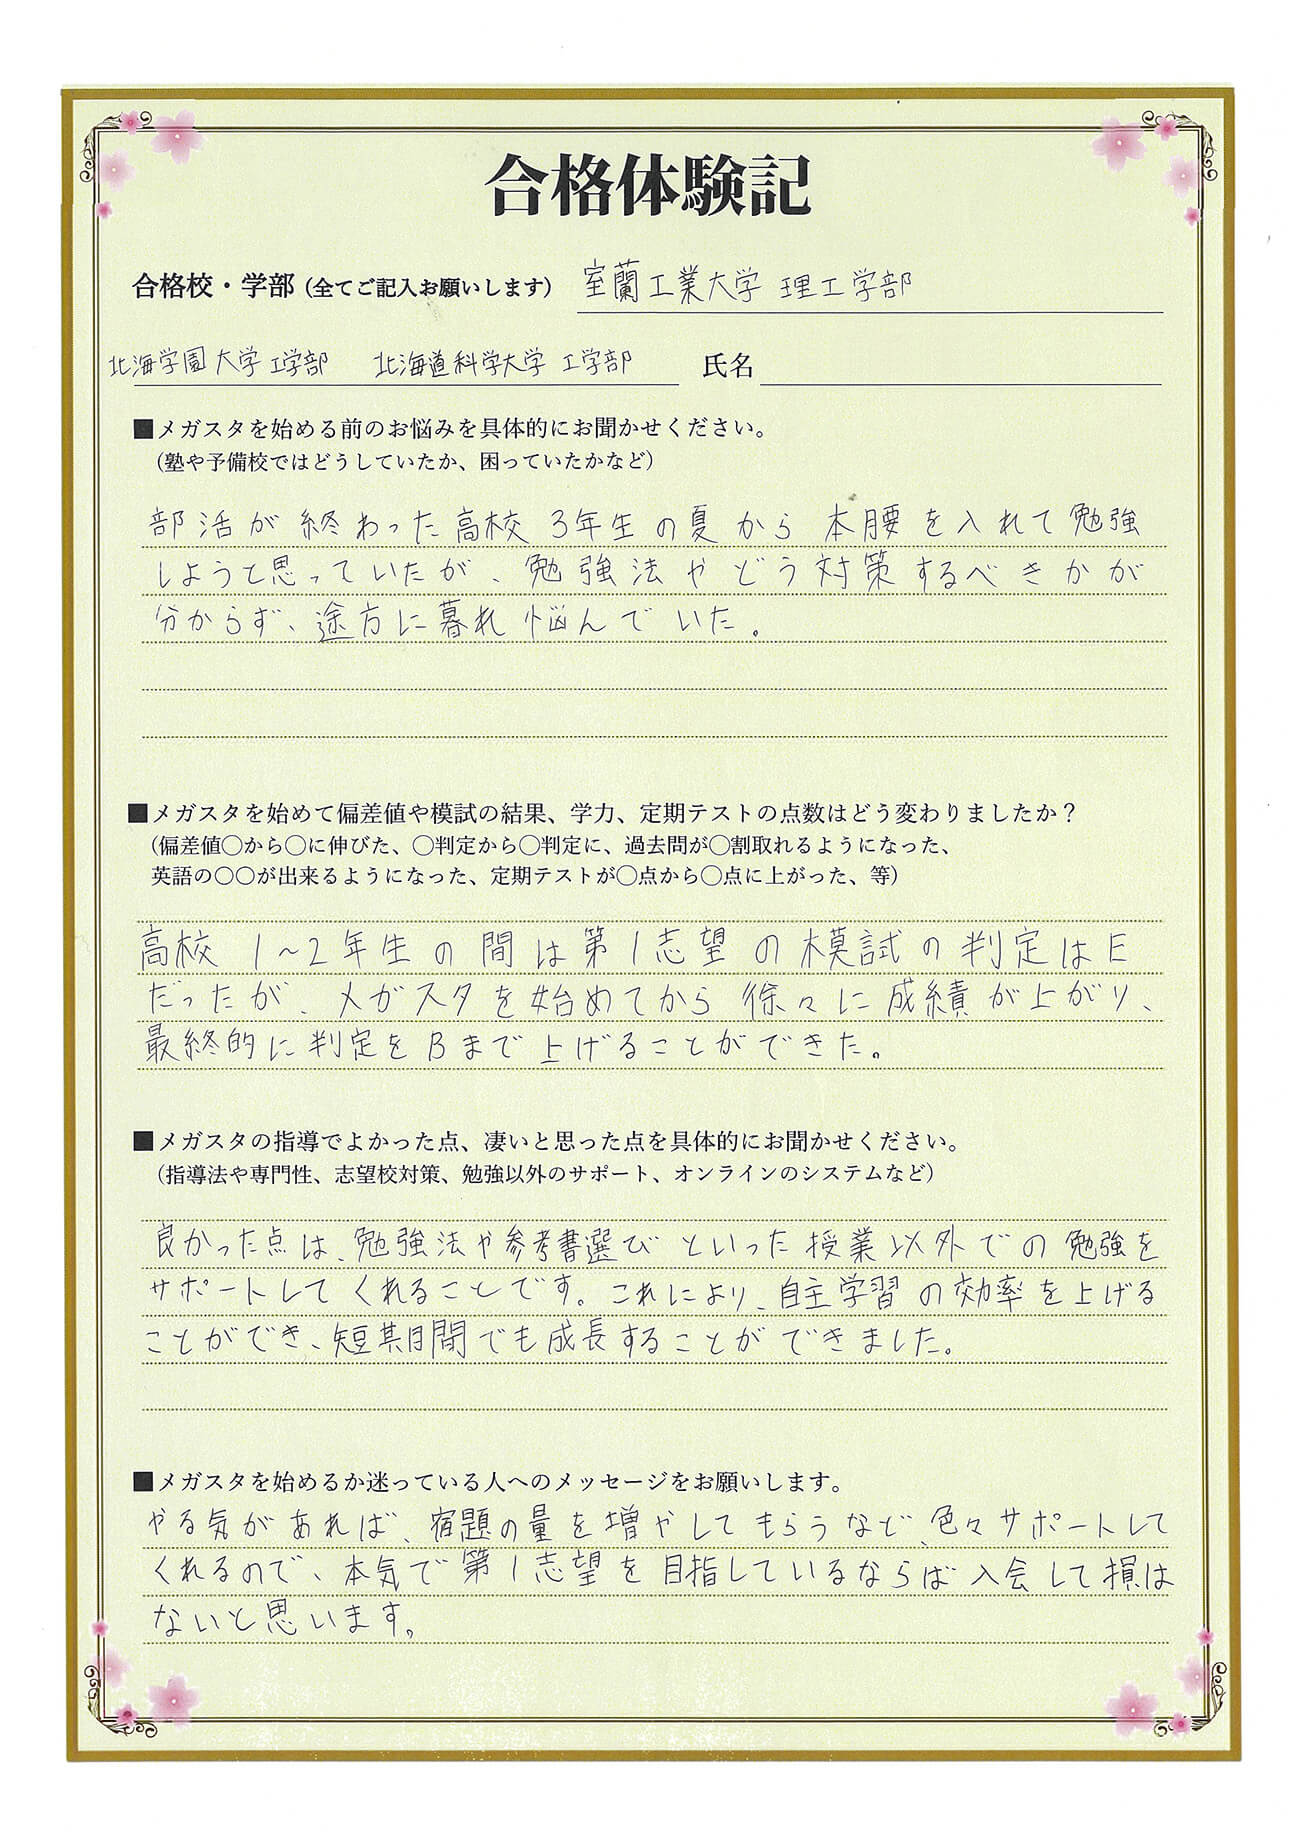 合格体験記
合格校・学部（全てご記入お願いします） 室蘭工業大学 理工学部
北海学園大学 工学部 北海道科学大学 工学部 氏名
■メガスタを始める前のお悩みを具体的にお聞かせください。
（塾や予備校ではどうしていたか、困っていたかなど）
部活が終わった高校3年生の夏から本腰を入れて勉強
しようと思っていたが、勉強法やどう対策するべきかが
分からず、途方に暮れ悩んでいた。
■メガスタを始めて偏差値や模試の結果、学力、定期テストの点数はどう変わりましたか？
（偏差値〇から〇に伸びた、〇判定から〇判定に、過去問が〇割取れるようになった、
英語の〇〇が出来るようになった、定期テストが〇点から〇点に上がった、等）
高校1～2年生の間は第1志望の模試の判定はE
だったが、メガスタを始めてから徐々に成績が上がり、
最終的に判定をBまで上げることができた。
■メガスタの指導でよかった点、凄いと思った点を具体的にお聞かせください。
（指導法や専門性、志望校対策、勉強以外のサポート、オンラインのシステムなど）
良かった点は、勉強法や参考書選びといった授業以外での勉強を
サポートしてくれることです。これにより、自主学習の効率を上げる
ことができ、短期間でも成長することができました。
■メガスタを始めるか迷っている人へのメッセージをお願いします。
やる気があれば、宿題の量を増やしてもらうなど、色々サポートして
くれるので、本気で第1志望を目指しているならば入会して損は
ないと思います。